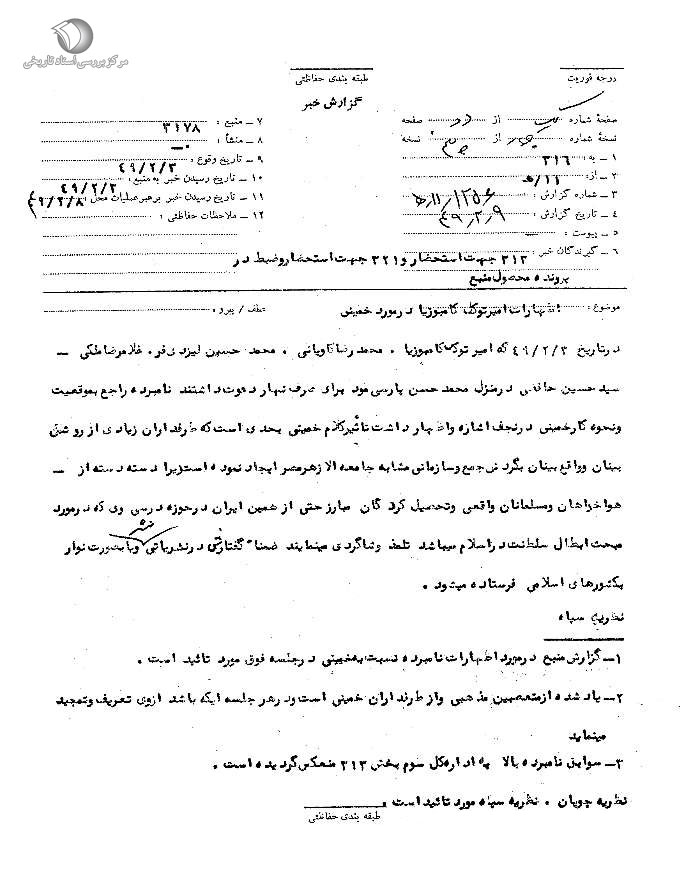 مرکز بررسی اسناد تاریخی
درجه فوریت
طبقه بندی حفاظتی
گزارش خبر
صفحهٔ شماره یک از دو صفحه
نسخهٔ شماره یک از چهار نسخه
۱ ــ به: ۳۱۶
۲ ــ از: ۱۱/ه
۳ ــ شماره گزارش: ۱۲۵۶/۱۱ه
۴ ــ تاریخ گزارش: ۴۹/۲/۹
۵ ــ پیوست:
۶ ــ گیرندگان خبر: ۳۱۲ جهت استحضار و ۳۲۱ جهت استحضار و ضبط در
پرونده محصول منبع
۷ ــ منبع: ۳۱۷۸
۸ ــ منشأ:
۹ ــ تاریخ وقوع: ۴۹/۲/۳
۱۰ ــ تاریخ رسیدن خبر به منبع: ۴۹/۲/۳
۱۱ ــ تاریخ رسیدن خبر برهبر عملیات محل: ۴۹/۲/۸
۱۲ ــ ملاحظات حفاظتی:
موضوع: اظهارات امیرتوکل کامبوزیا در مورد خمینی
عطف / پیرو:
در تاریخ ۴۹/۲/۳ که امیر توکل کامبوزیا ، محمد رضا کاویانی ، محمد حسین ایزدی فر، غلامرضا ملکی ــ
سید حسین حافظی در منزل محمد حسن پارسی مود برای صرف نهار دعوت داشتند نامبرده راجع بموقعیت
ونحوه کار خمینی در نجف اشاره واظهار داشت تأثیر کلام خمینی بحدی است که طرفداران زیادی از روشن
بینان وواقع بینان بگردش جمع و سازمانی مشابه جامعه الازهر مصر ایجاد نموده است زیرا دسته دسته از ــ
هواخواهان ومسلمانان واقعی وتحصیل کردگان مبارز حتی از همین ایران در حوزه درسی وی که در مورد
مبحث ابطال سلطنت در اسلام میباشد تلمذ وشاگردی مینمایند ضمناً گفتارش در نشریاتی ویا بصورت نوار
بکشورهای اسلامی فرستاده میشود .
نظریه سپاه
۱ــ گزارش منبع در مورد اظهارات نامبرده نسبت به خمینی در جلسه فوق مورد تائید است .
۲ــ یاد شده از متعصبین مذهبی واز طرفداران خمینی است ودر هر جلسه ایکه باشد ازوی تعریف وتمجید
مینماید
۳ــ سوابق نامبرده بالا به اداره کل سوم بخش ۳۱۲ منعکس گردیده است .
نظریه چوپان . نظریه سپاه مورد تائید است .
طبقه بندی حفاظتی